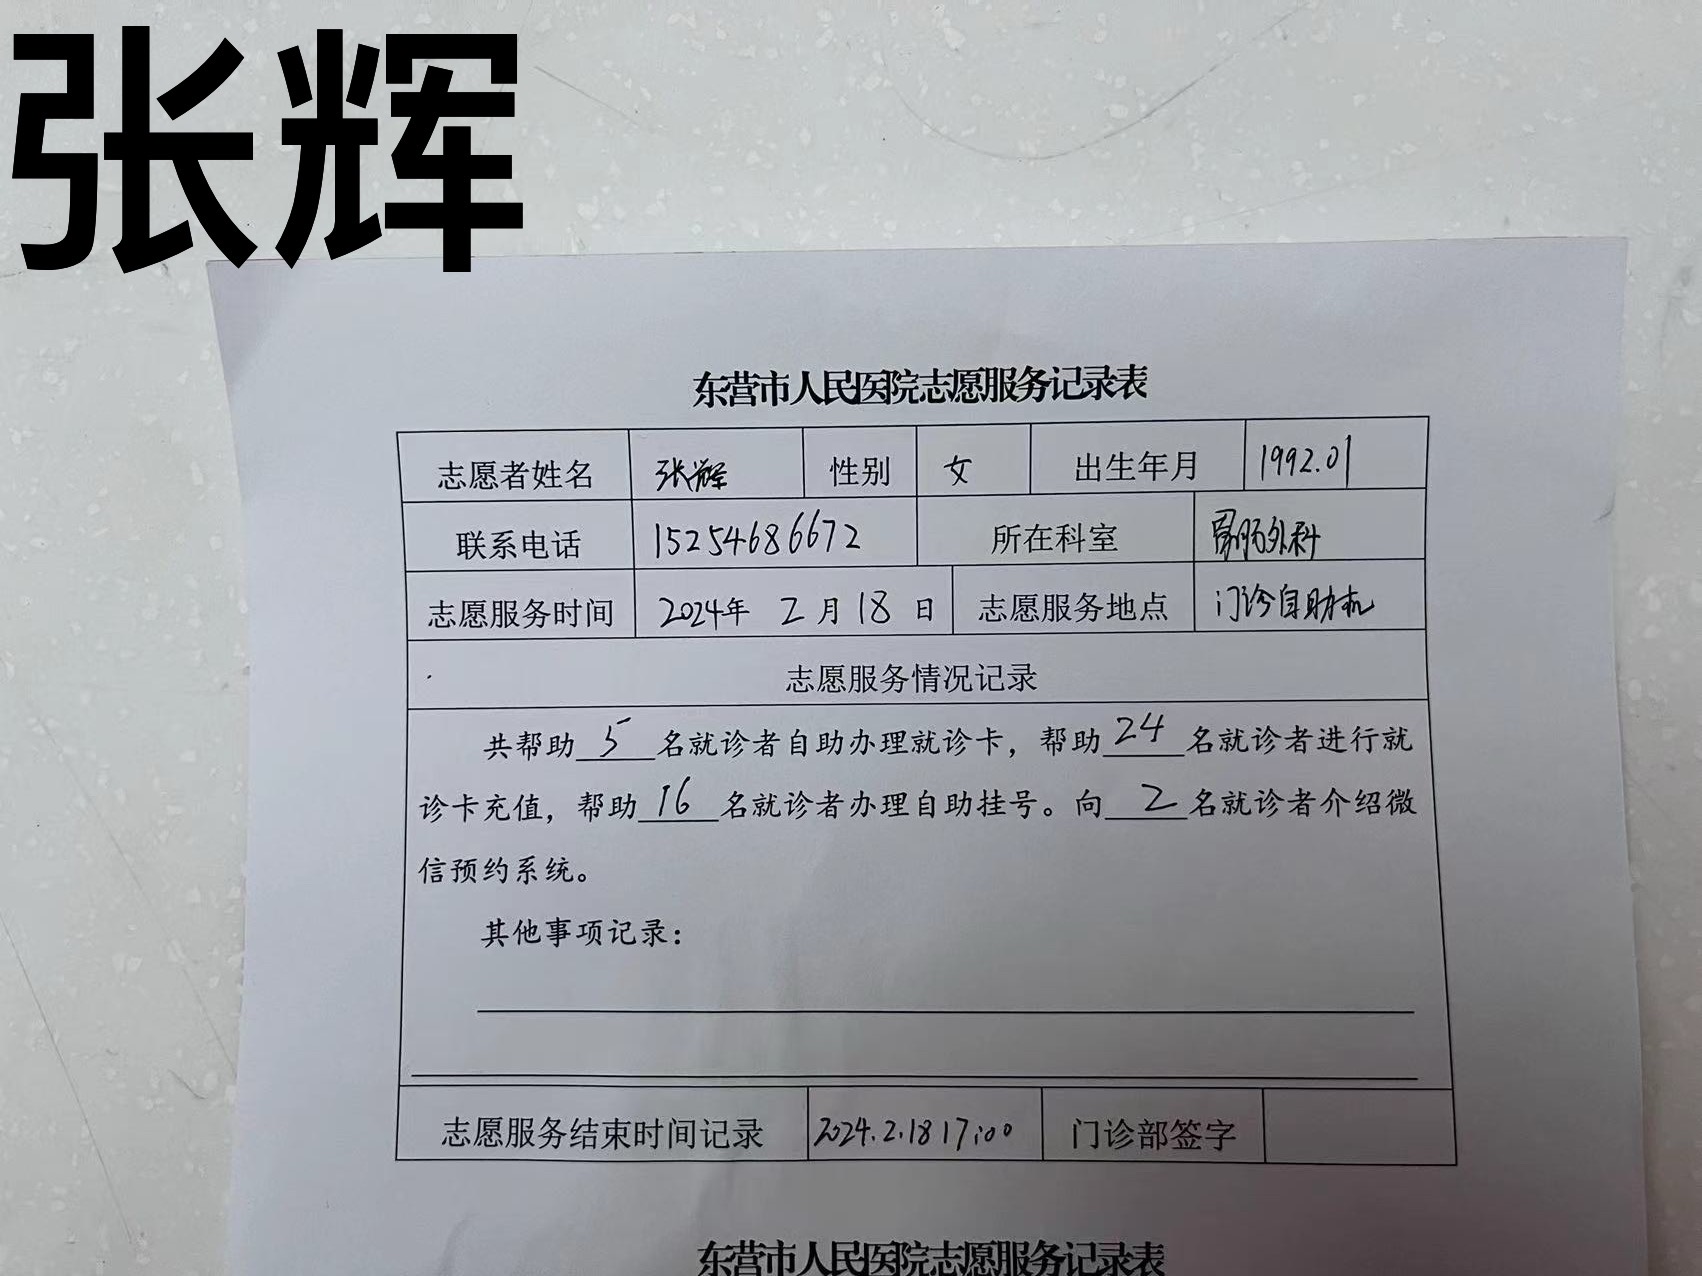 张辉
东营市人民医院志愿服务记录表
志愿者姓名 张辉 性别 女 出生年月 1992.01
联系电话 15254686672 所在科室 胃肠外科
志愿服务时间 2024年 2月18日 志愿服务地点 门诊自助机
志愿服务情况记录
共帮助5名就诊者自助办理就诊卡，帮助24名就诊者进行就
诊卡充值，帮助16名就诊者办理自助挂号。向2名就诊者介绍微
信预约系统。
其他事项记录：
志愿服务结束时间记录 2024.2.18 17:00 门诊部签字
东营市人民医院志愿服务记录表